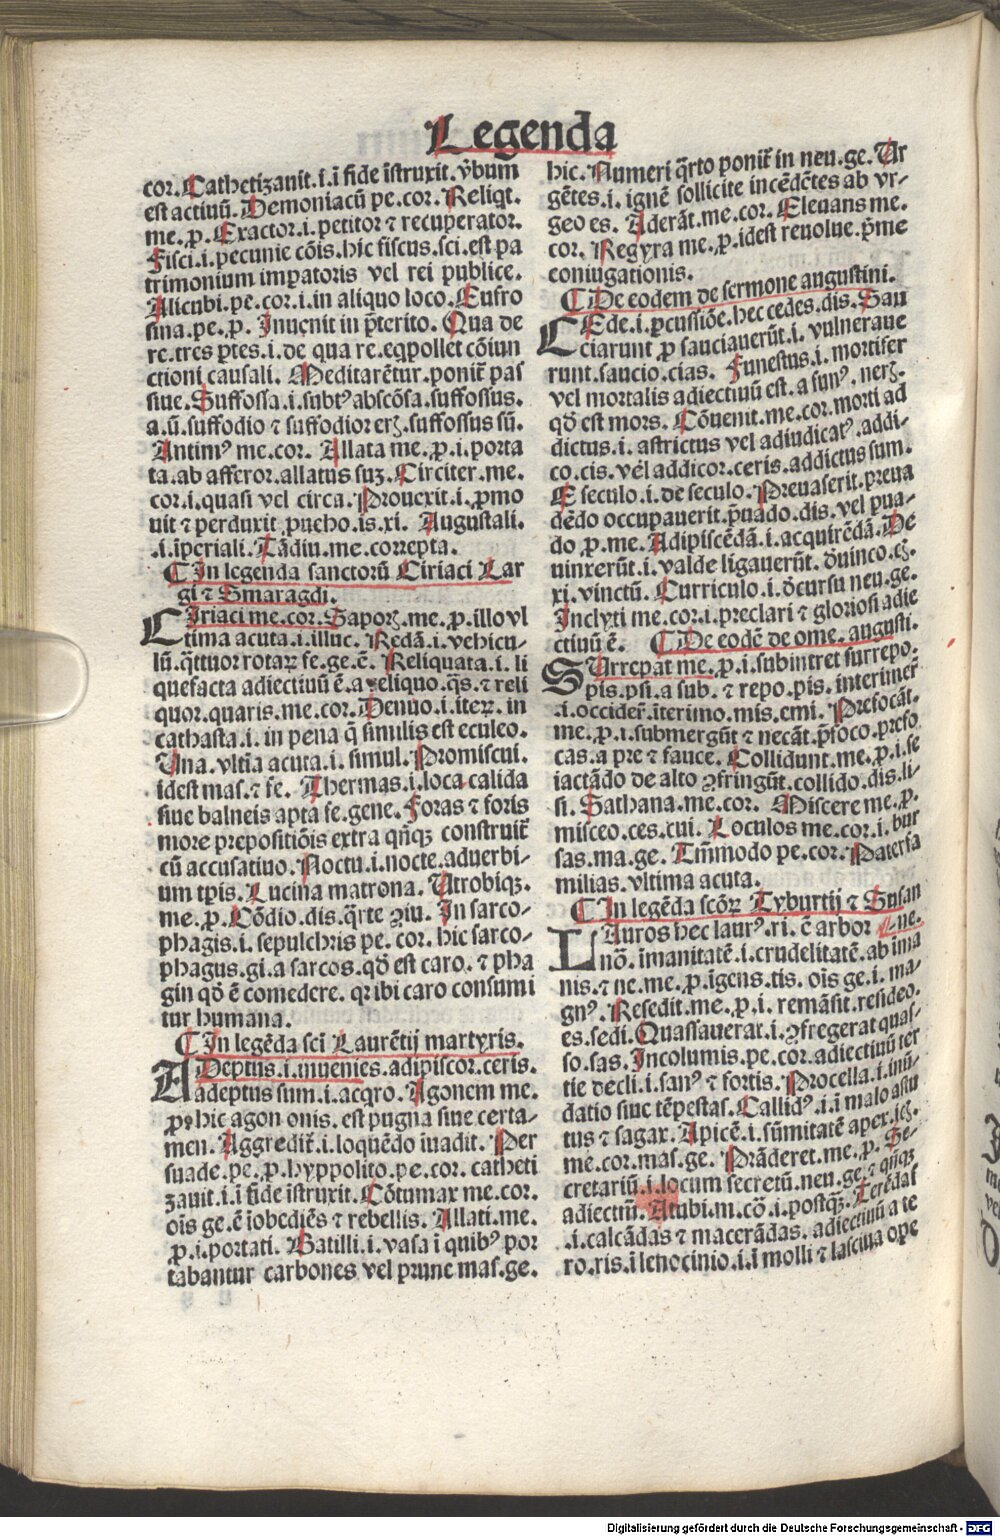 Legenda
cor. Cathetizauit.i.ĩ fide ĩstruxit. v̾bum
est actiuũ. Demoniacũ pe.cor. Reliqt.
me.ꝓ. Exactor.i.petitor ⁊ recuperator.
Fisci.i.pecunie cõis.hic fiscus.sci.est pa
trimonium impatoris vel rei publice.
Alicubi.pe.cor.i.in aliquo loco. Eufro
sina.pe.ꝑ. Inuenit in p̃terito. Qua de
re.tres ptes.i.de qua re.eqpollet cõiun
ctioni causali. Meditarẽtur.ponit̃ pas
siue. Suffossa.i.subtꝰ abscõsa.suffossus.
a.ũ.suffodio ⁊ suffodior erꝫ.suffossus sũ.
Antimꝰ me.cor. Allata me.ꝓ.i.porta
ta.ab afferor.allatus suꝫ. Circiter.me.
cor.i.quasi vel circa. Prouexit.i.ꝓmo
uit ⁊ perduxit.ꝓueho.is.xi. Augustali.
.i.ĩperiali. Tãdiu.me.correpta.
In legenda sanctorũ Ciriaci Lar
gi ⁊ Smaragdi.
Ciriaci me.cor. Saporꝫ.me.ꝓ.illo vl
tima acuta.i.illuc. Redã.i.vehicu-
lũ.q̃ttuor rotaꝝ fe.ge.ẽ. Reliquata.i.li
quefacta adiectiuũ ẽ.a reliquo.q̃s.⁊ reli
quor.quaris.me.cor. Denuo.i.iteꝝ. in
cathasta.i.in pena q̃ similis est eculeo.
Una.vltĩa acuta.i.simul. Promiscui.
idest mas.⁊ fe. Thermas.i.loca calida
siue balneis apta fe.gene. Foras ⁊ foris
more prepositiõis extra qñqꝫ construit̃
cũ accusatiuo. Noctu.i.nocte.aduerbi-
um tpis. Lucina matrona. Utrobiqꝫ.
me.ꝓ. Cõdio.dis.q̃rte ꝯiu. In sarco-
phagis.i.sepulchris pe.cor.hic sarco-
phagus.gi.a sarcos.qd̃ est caro.⁊ pha
gin qd̃ ẽ comedere. qꝛ ibi caro consumi
tur humana.
In legẽda sci Laurẽtij martyris.
ADeptus.i.inuenies.adipiscor.ceris.
adeptus sum.i.acqro. Agonem me.
ꝓ.hic agon onis.est pugna siue certa-
men. Aggredit̃.i.loquẽdo inadit. Per
suade.pe.ꝓ.hyppolito.pe.cor. catheti
zauit.i.ĩ fide ĩstruxit. Cõtumax me.cor.
oĩs ge.ẽ ĩobediẽs ⁊ rebellis. Allati.me.
ꝓ.i.portati. Batilli.i.vasa ĩ quibꝰ por
tabantur carbones vel prune mas.ge.
hic. Numeri q̃rto ponit̃ in neu.ge. Ur
gẽtes.i.ignẽ sollicite incẽdẽtes ab vr-
geo es. Aderãt.me.cor. Eleuans me.
cor. Regyra me.ꝓ.idest reuolue.p̃me
coniugationis.
De eodem de sermone augustini.
CEde.i.ꝑcussiõe.hec cedes.dis. Sau
ciarunt ꝓ sauciauerũt.i.vulneraue
runt.saucio.cias. Funestus.i.mortifer
vel mortalis adiectiuũ est.a funꝰ.nerꝫ.
qd̃ est mors. Cõuenit.me.cor.morti ad
dictus.i.astrictus vel adiudicatꝰ.addi-
co.cis.vel addicor.ceris.addictus sum.
E seculo.i.de seculo. Preuaserit.preua
dẽdo occupauerit.p̃uado.dis.vel pua-
do ꝓ.me. Adipiscẽdã.i.acquirẽdã. De
uinxerũt.i.valde ligauerũt.d̃uinco.cꝫ.
xi.vinctũ. Curriculo.i.d̃cursu neu.ge.
Inclyti me.cor.i.preclari ⁊ gloriosi adie
ctiuũ ẽ. De eodẽ de ome. augusti.
SUrrepat me.ꝓ.i.subintret surrepo.
pis.psi.a sub.⁊ repo.pis. interimer̃
.i.occider̃.ĩterimo.mis.emi. Prefocãt.
me.ꝓ.i.submergũt ⁊ necãt.p̃foco.prefo
cas.a pre ⁊ fauce. Collidunt.me.ꝓ.i.se
iactãdo de alto ꝯfringũt.collido.dis.li-
si. Sathana.me.cor. Miscere me.ꝓ.
misceo.ces.cui. Loculos me.cor.i.bur
sas.ma.ge. Tm̃modo pe.cor. Paterfa
milias.vltima acuta.
In legẽda scõꝝ Tyburtij ⁊ Susan
ne.
LAuros hec laurꝰ.ri. ẽ arbor
nõ. imanitatẽ.i.crudelitatẽ.ab ima
nis.⁊ ne.me.ꝓ.ĩgens.tis. oĩs ge.i.ma-
gnꝰ. Resedit.me.ꝓ.i. remãsit.resideo.
es.sedi. Quassauerat.i.ꝯfregerat quas-
so.sas. Incolumis.pe.cor.adiectiuũ ter
tie decli.i.sanꝰ ⁊ fortis. Procella.i.inũ-
datio siue tẽpestas. Callidꝰ.i.ĩ malo astu
tus ⁊ sagax. Apicẽ.i.sũmitatẽ apex.icꝫ.
me.cor.mas.ge. Prãderet.me.ꝓ. Se-
cretariũ.i.locum secretũ.neu.ge.⁊ qñqꝫ
adiectiũ. Atubi.m.cõ.i.postqꝫ. Terẽdas
.i.calcãdas ⁊ macerãdas. adiectiuũ a te
ro.ris.ĩ lenocinio.i.ĩ molli ⁊ lasciua ope
Digitalisierung gefördert durch die Deutsche Forschungsgemeinschaft - DFG